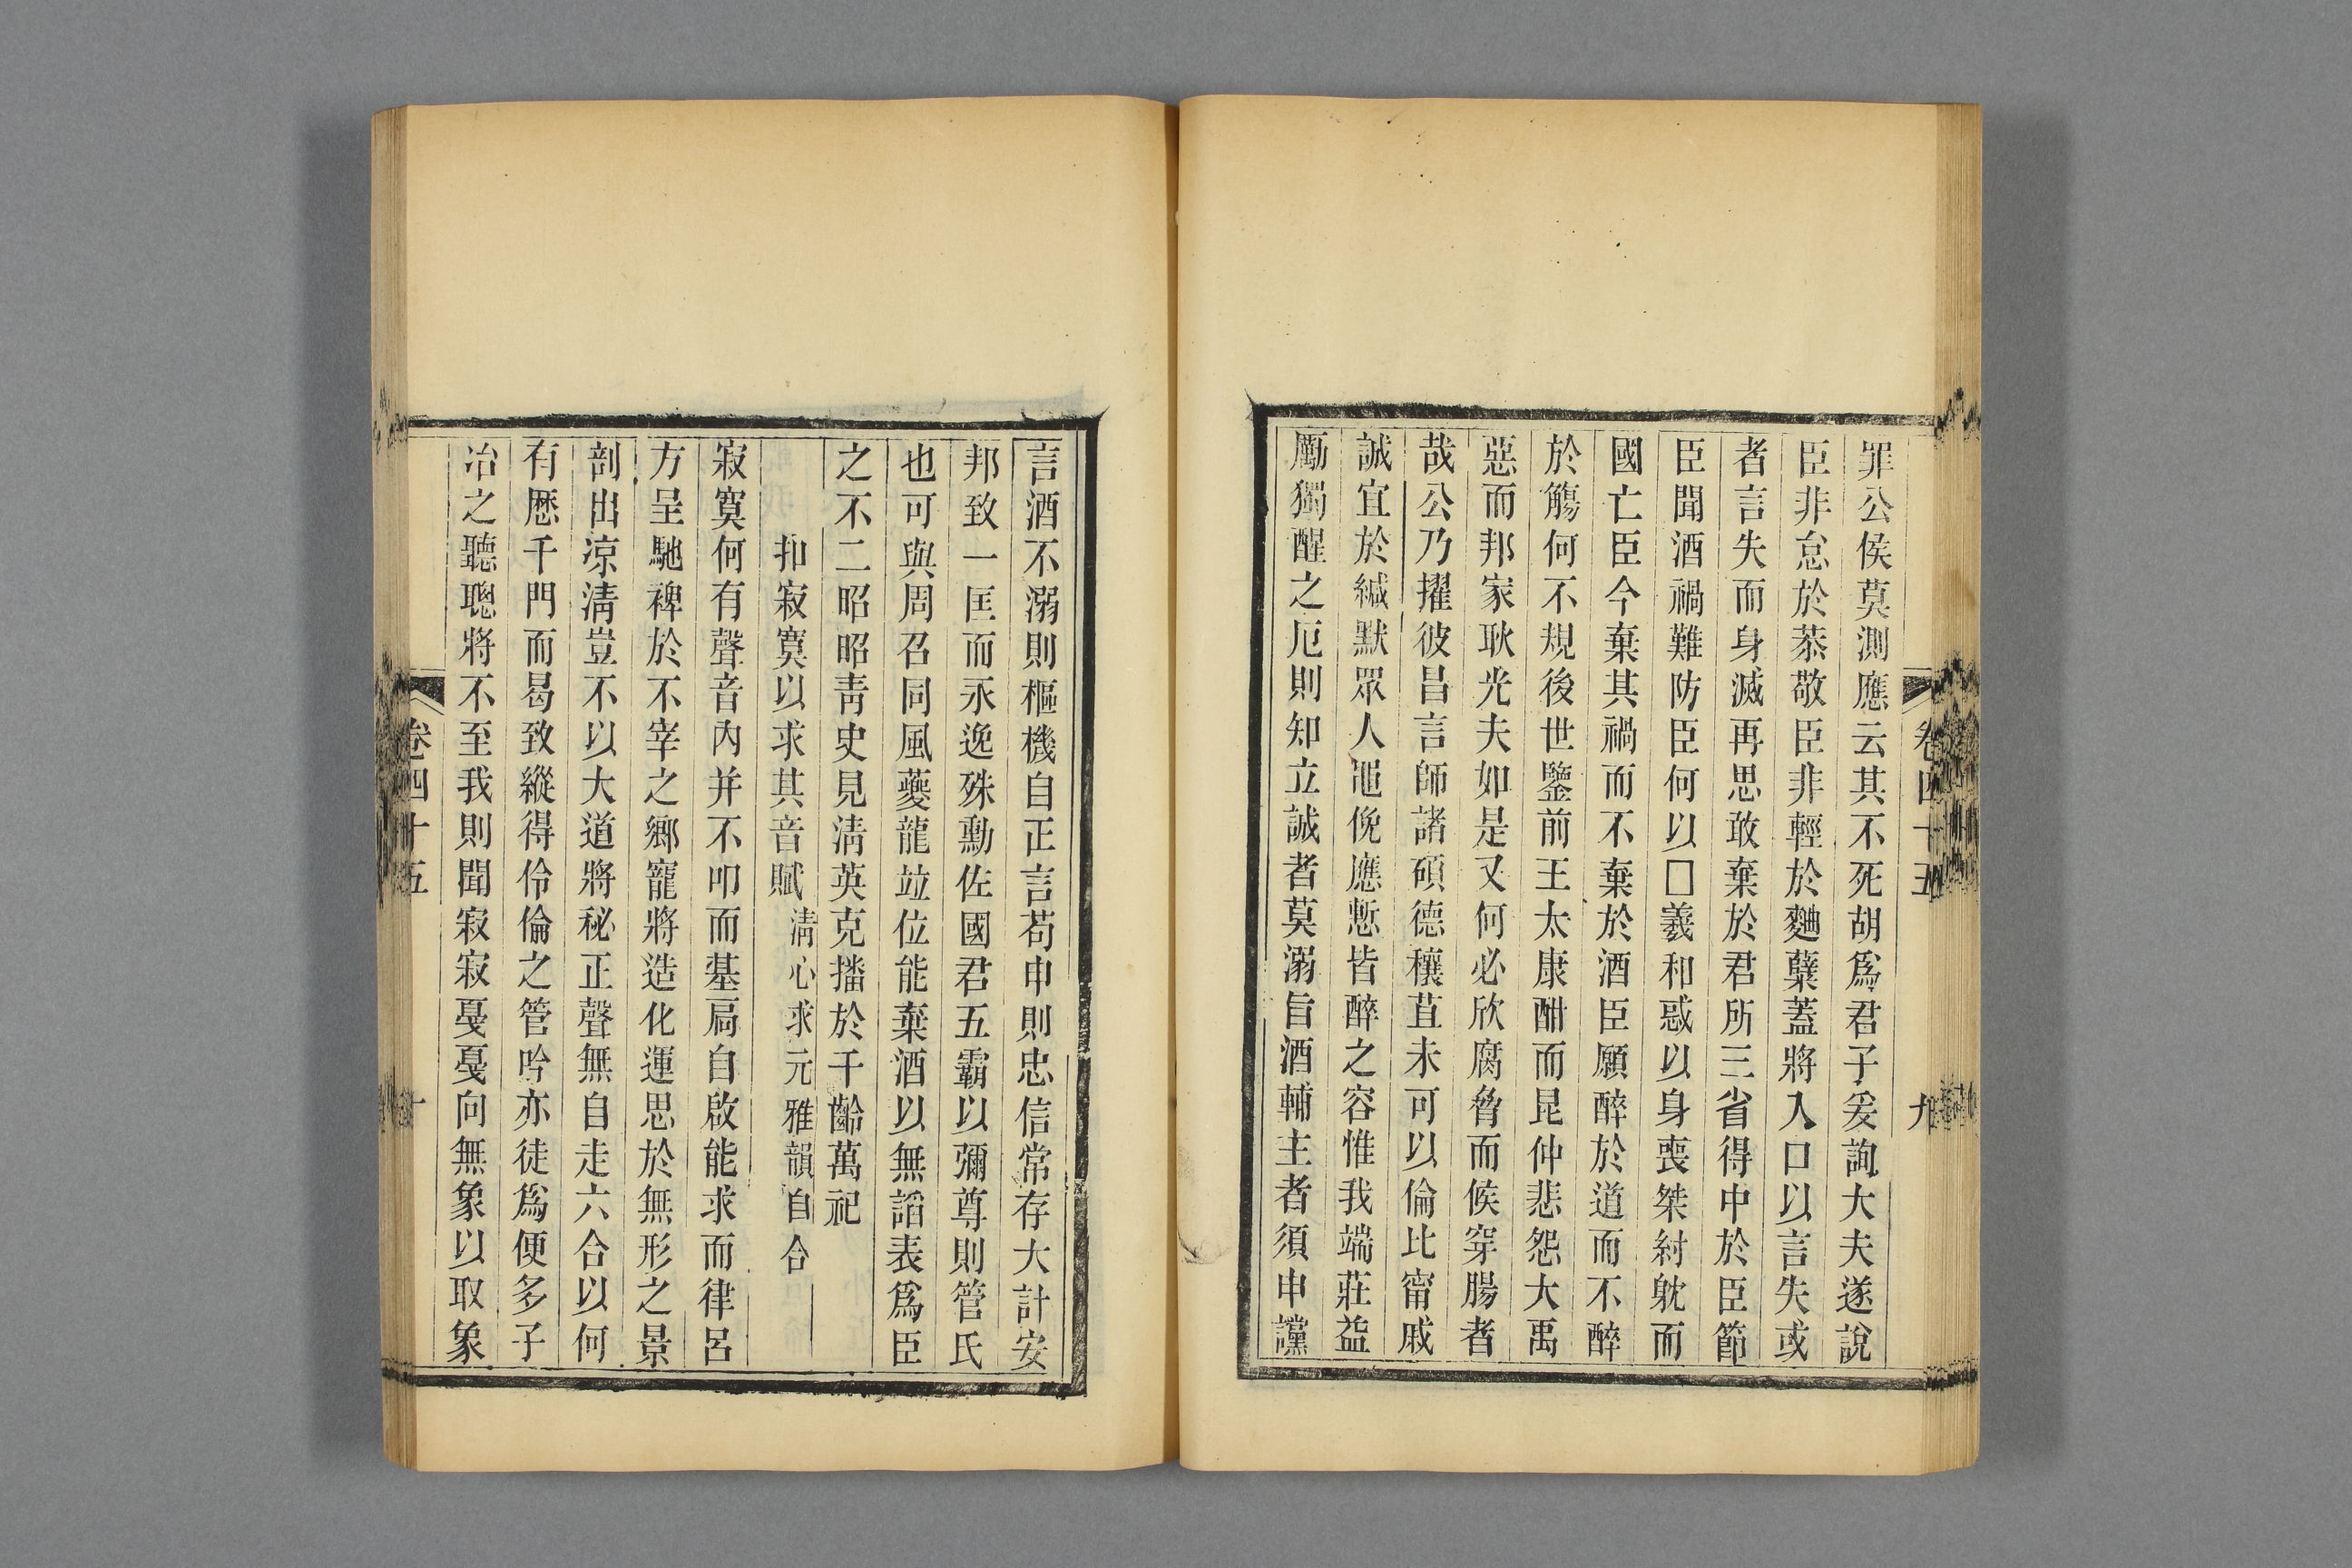 卷四十五
九
罪公侯莫測應云其不死胡爲君子爰詢大夫遂說
臣非怠於恭敬臣非輕於麯糵蓋將入口以言失或
者言失而身滅再思敢棄於君所三省得中於臣節
臣聞酒禍難防臣何以□羲和惑以身喪桀紂躭而
國亡臣今棄其禍而不棄於酒臣願醉於道而不醉
於觴何不規後世鑒前王太康酣而昆仲悲怨大禹
惡而邦家耿光夫如是又何必欣腐脅而候穿腸者
哉公乃擢彼昌言師諸碩德穰苴未可以倫比甯戚
誠宜於緘默眾人黽俛應慙皆醉之容惟我端莊益
勵獨醒之厄則知立誠者莫溺旨酒輔主者須申讜
言酒不溺則樞機自正言苟申則忠信常存大計安
邦致一匡而永逸殊勳佐國君五霸以彌尊則管氏
也可與周召同風夔龍竝位能棄酒以無謟表爲臣
之不二昭昭靑史見淸英克播於千齡萬祀
扣寂寞以求其音賦淸心求元雅韻自合
寂寞何有聲音內并不叩而基扃自啟能求而律呂
方呈馳裨於不宰之鄉寵將造化運思於無形之景
剖出凉淸豈不以大道將秘正聲無自走六合以何
有歷千門而曷致縱得伶倫之管吟亦徒爲便多子
冶之聽聰將不至我則聞寂寂戛戛向無象以取象
卷四十五
十